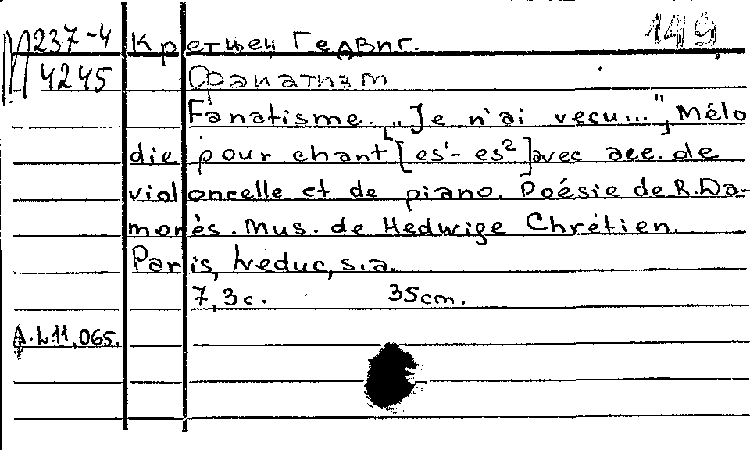 237-4 Кретьен Гедвиг. 149
4245 Фанатизм
Fanatisme. „Je n'ai vecu...", Mélo
die pour chant [es¹-es²] avec acc. de
violoncelle et de piano. Poésie de R. Da-
morès. Mus. de Hedwige Chrétien.
Paris, Leduc, s.a.
7,3 с. 35cm.